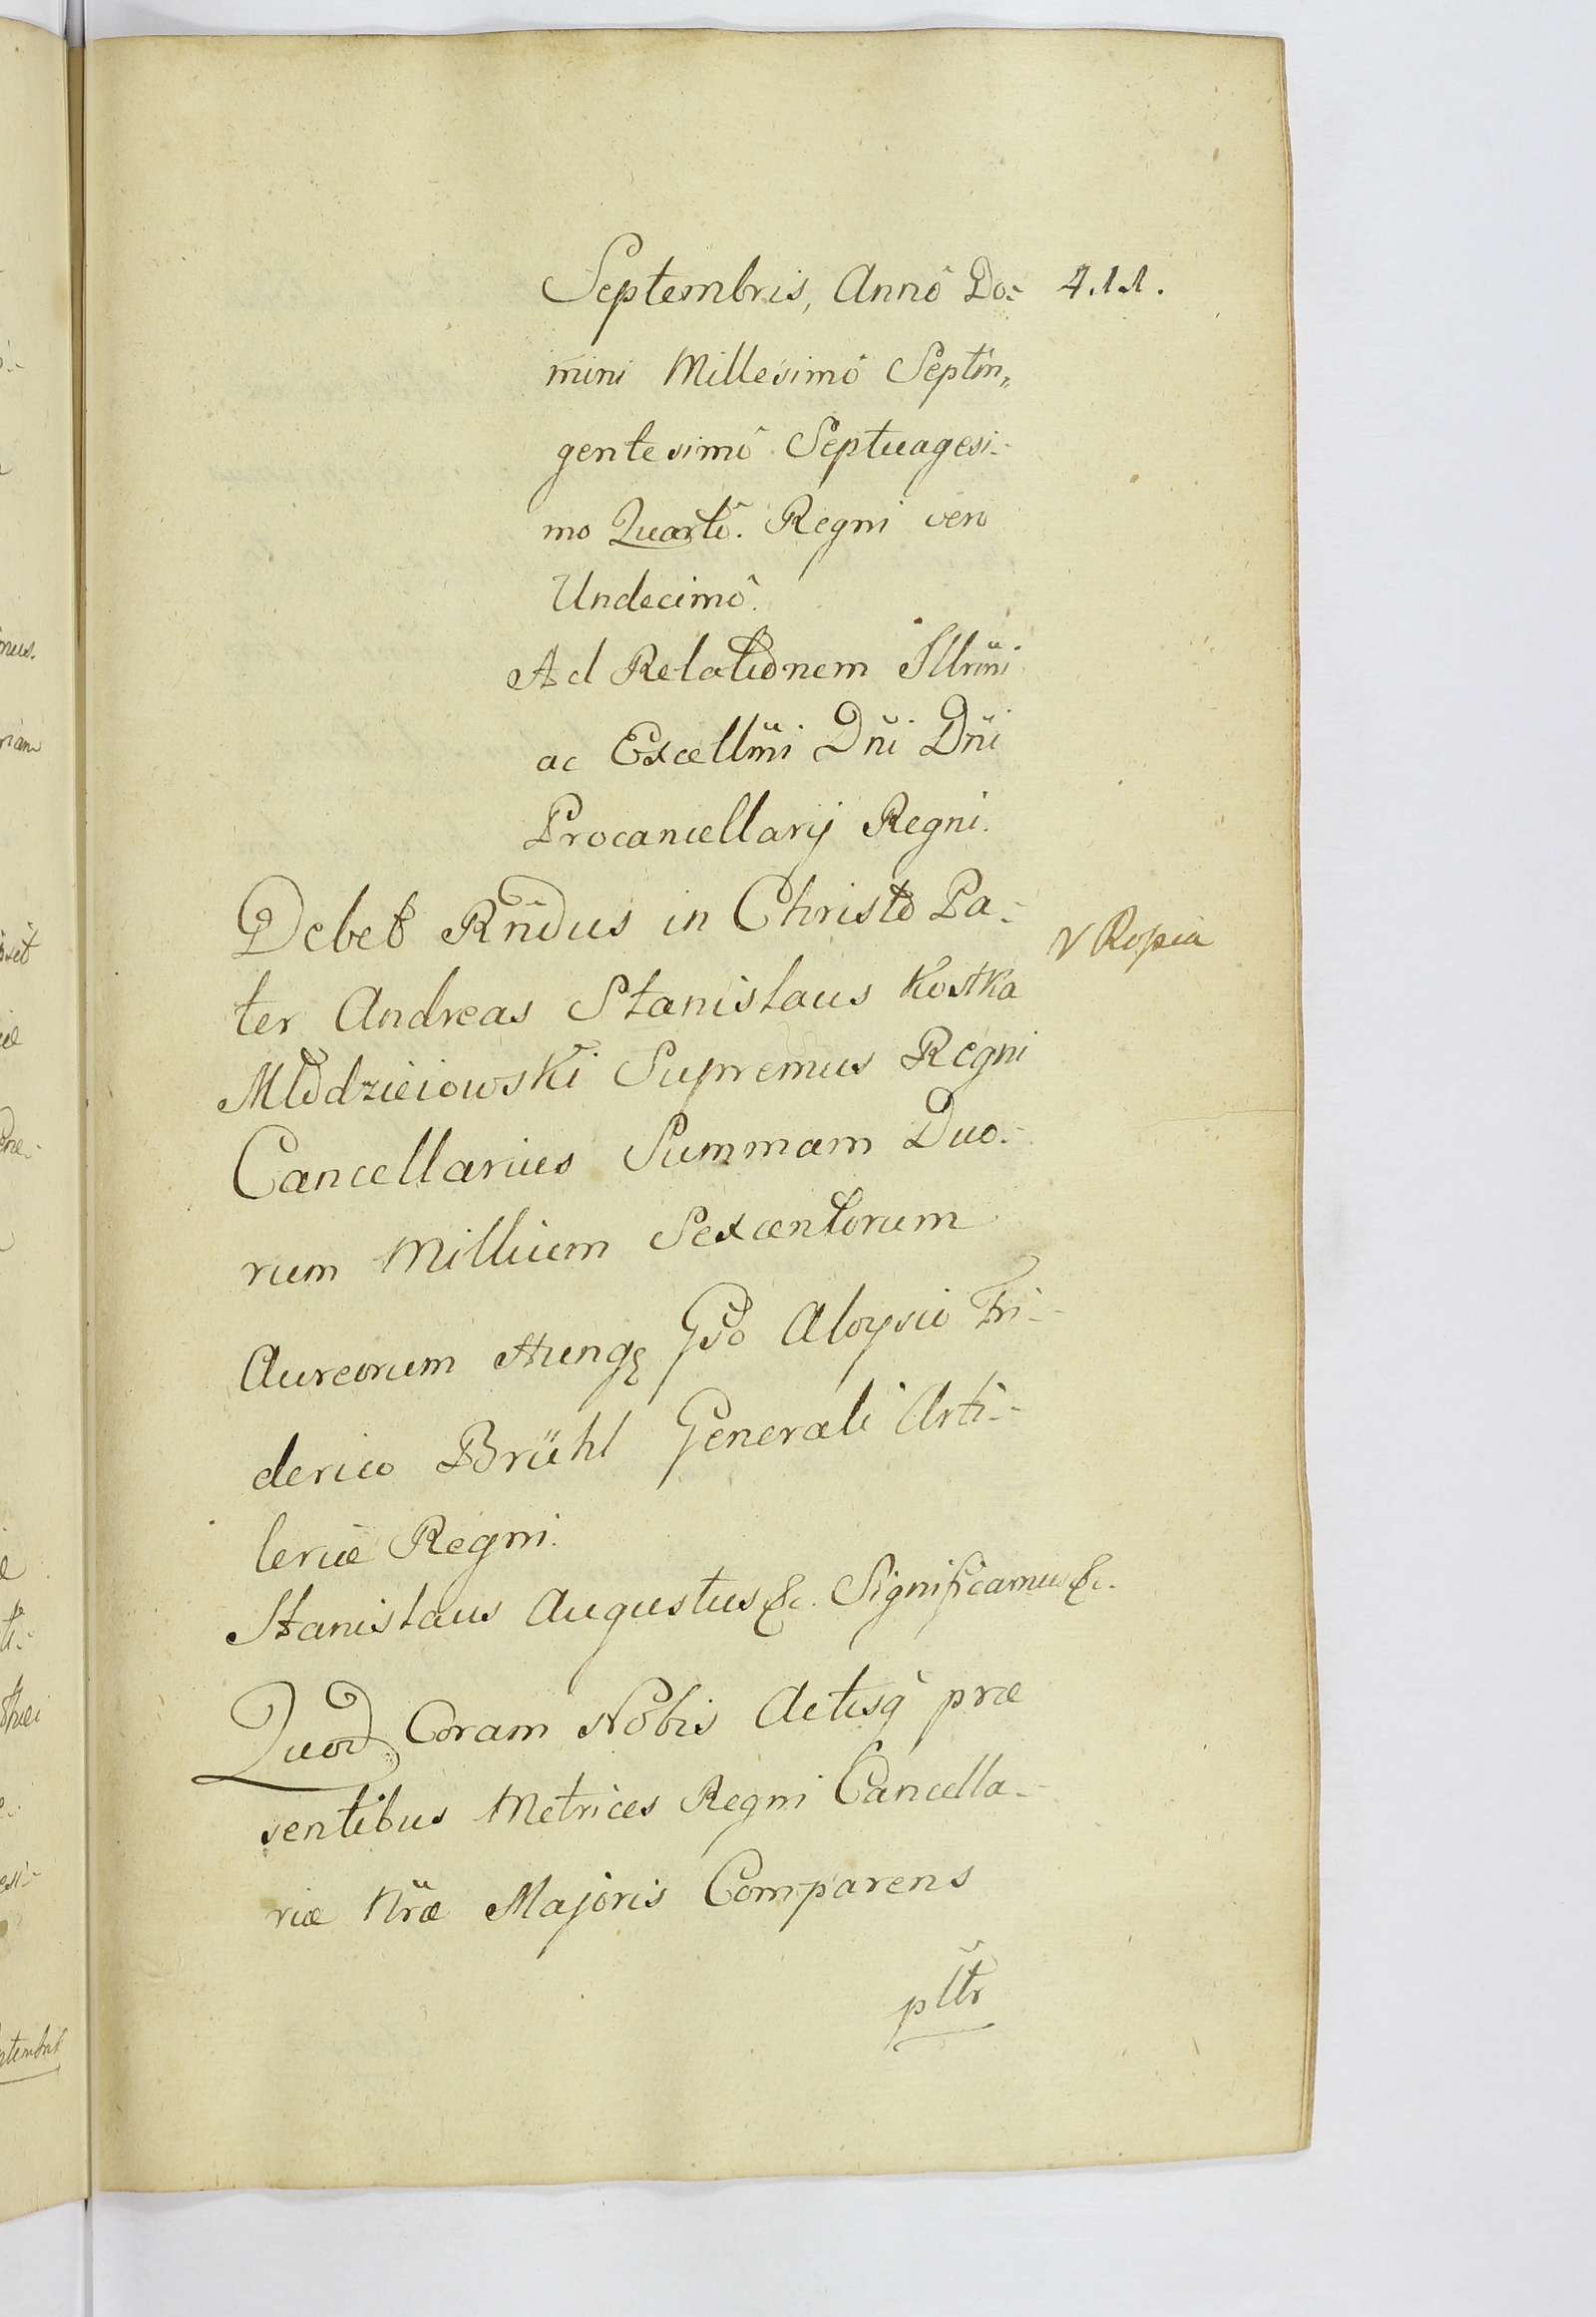 Septembris, Annô Do- 411.
mini Millesimô Septin„
gentesimô Septuagesi-
mo Quartô. Regni vero
Undecimô.
Ad Relationem Illr̃mi
ac Excellm̃i Dñi Dñi
Procancellarij Regni.
Debet Rñdus in Christo Pa- V Kopia
ter Andreas Stanislaus Kostka
Młodzieiowski Supremus Regni
Cancellarius Summam Duo-
rum Millium Sexcentorum
Aureorum Hung: Gso Aloysio Fri-
derico Brühl Generali Arti-
leriæ Regni.
Stanislaus Augustus &c. Significamus &c.
Quod Coram Nobis Actisq̃ præ
sentibus Metrices Regni Cancella-
riæ Nr̃æ Majoris Comparens
pltr̃